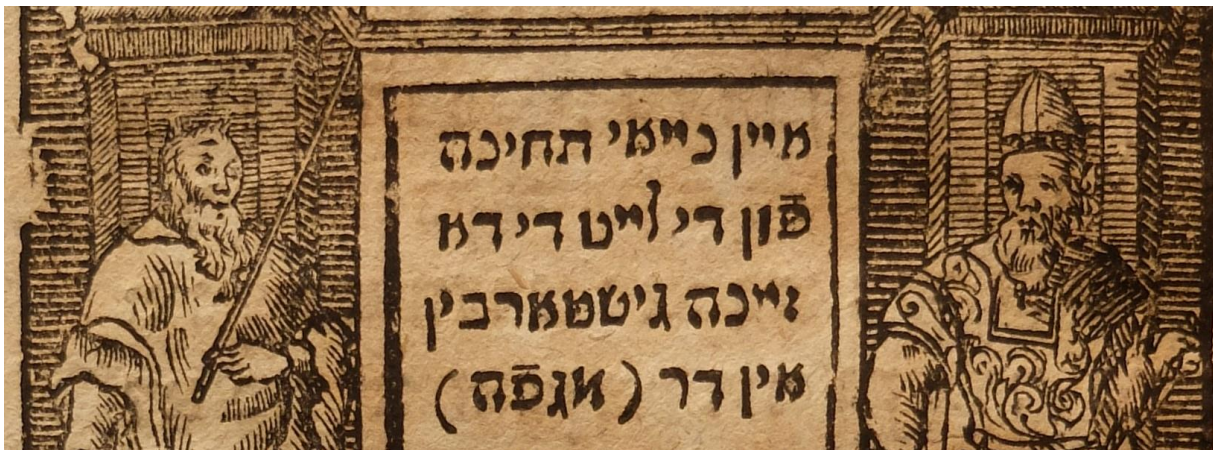 איין נייאי תחינה
פֿון די לייט די דא
זיינה גישטארבין
אין דר (מגפֿה)